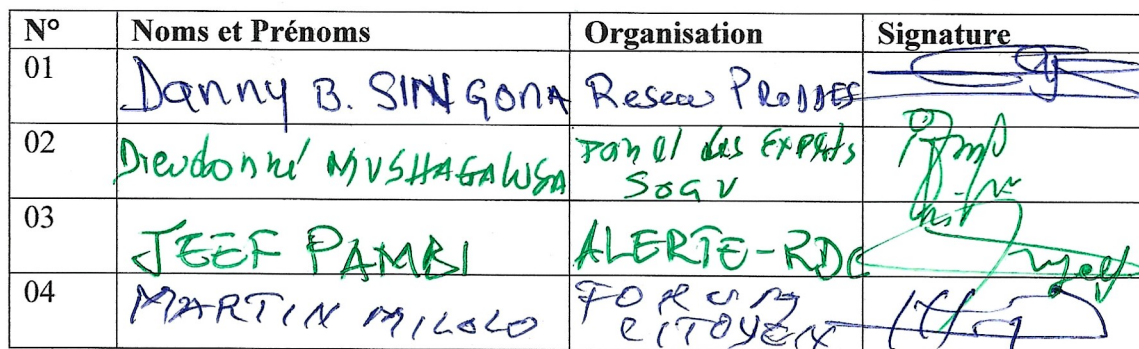 N° Noms et Prénoms Organisation Signature
01 Danny B. SINGONA Reseau PRODDES
02 Dieudonné MUSHAGALUSA Panel des Experts
SOGU
03 JEEF PAMBI ALERTE-RDC
04 MARTIN MILOLO FORUM
CITOYEN